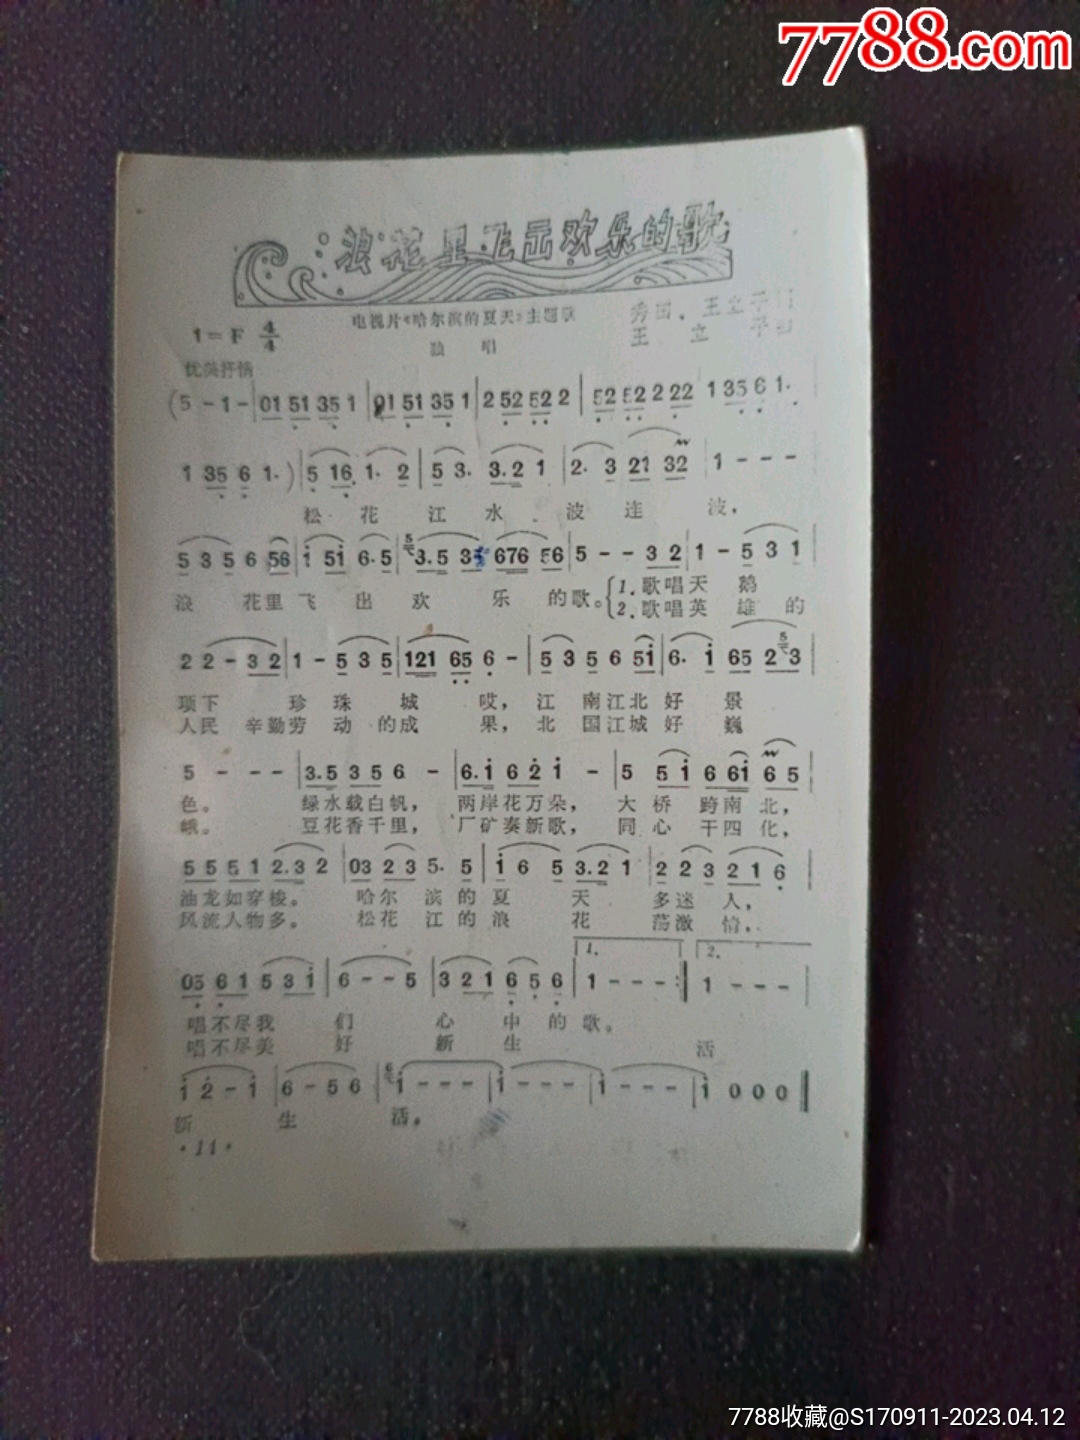 7788.com
浪花里飞出欢乐的歌
电视片《哈尔滨的夏天》主题歌
秀田、王立平词
王立平曲
1=F 4/4
独唱
优美抒情
(5 - 1 - | 01 51 35 1 | 01 51 35 1 | 2 52 52 2 | 52 52 2 22 | 1 35 6 1·
1 35 6 1· ) | 5 16 1· 2 | 5 3· 3·2 1 | 2· 3 21 32 | 1 - - -
松 花 江 水 波 连 波,
5 3 5 6 56 | i 5i 6·5 | 3·5 3 676 56 | 5 - - 3 2 | 1 - 5 3 1
浪 花里 飞 出 欢 乐 的歌。 1.歌唱天 鹅
2.歌唱英 雄 的
2 2 - 3 2 | 1 - 5 3 5 | 121 65 6 - | 5 3 5 6 5i | 6· i 65 2 3
项下 珍 珠 城 哎, 江 南江北 好 景
人民 辛勤劳 动 的成 果, 北 国江城 好 巍
5 - - - | 3·5 3 5 6 - | 6·i 6 2 i - | 5 5 i 6 6i 6 5
色。 绿水载白帆, 两岸花万朵, 大 桥 跨南 北,
峨。 豆花香千里, 厂矿奏新歌, 同 心 干四 化,
5 5 5 1 2·3 2 | 03 2 3 5· 5 | i 6 5 3·2 1 | 2 2 3 2 1 6
油龙如穿梭。 哈尔 滨 的 夏 天 多迷 人,
风流人物多。 松花 江 的 浪 花 荡激 情,
1. 2.
05 6 1 5 3 i | 6 - - 5 | 3 2 1 6 5 6 | 1 - - - :| 1 - - -
唱不尽我 们 心 中 的 歌。
唱不尽美 好 新 生 活
i 2 - i | 6 - 5 6 | i - - - | i - - - | i - - - | i 0 0 0
新 生 活。
·11·
7788收藏@S170911-2023.04.12